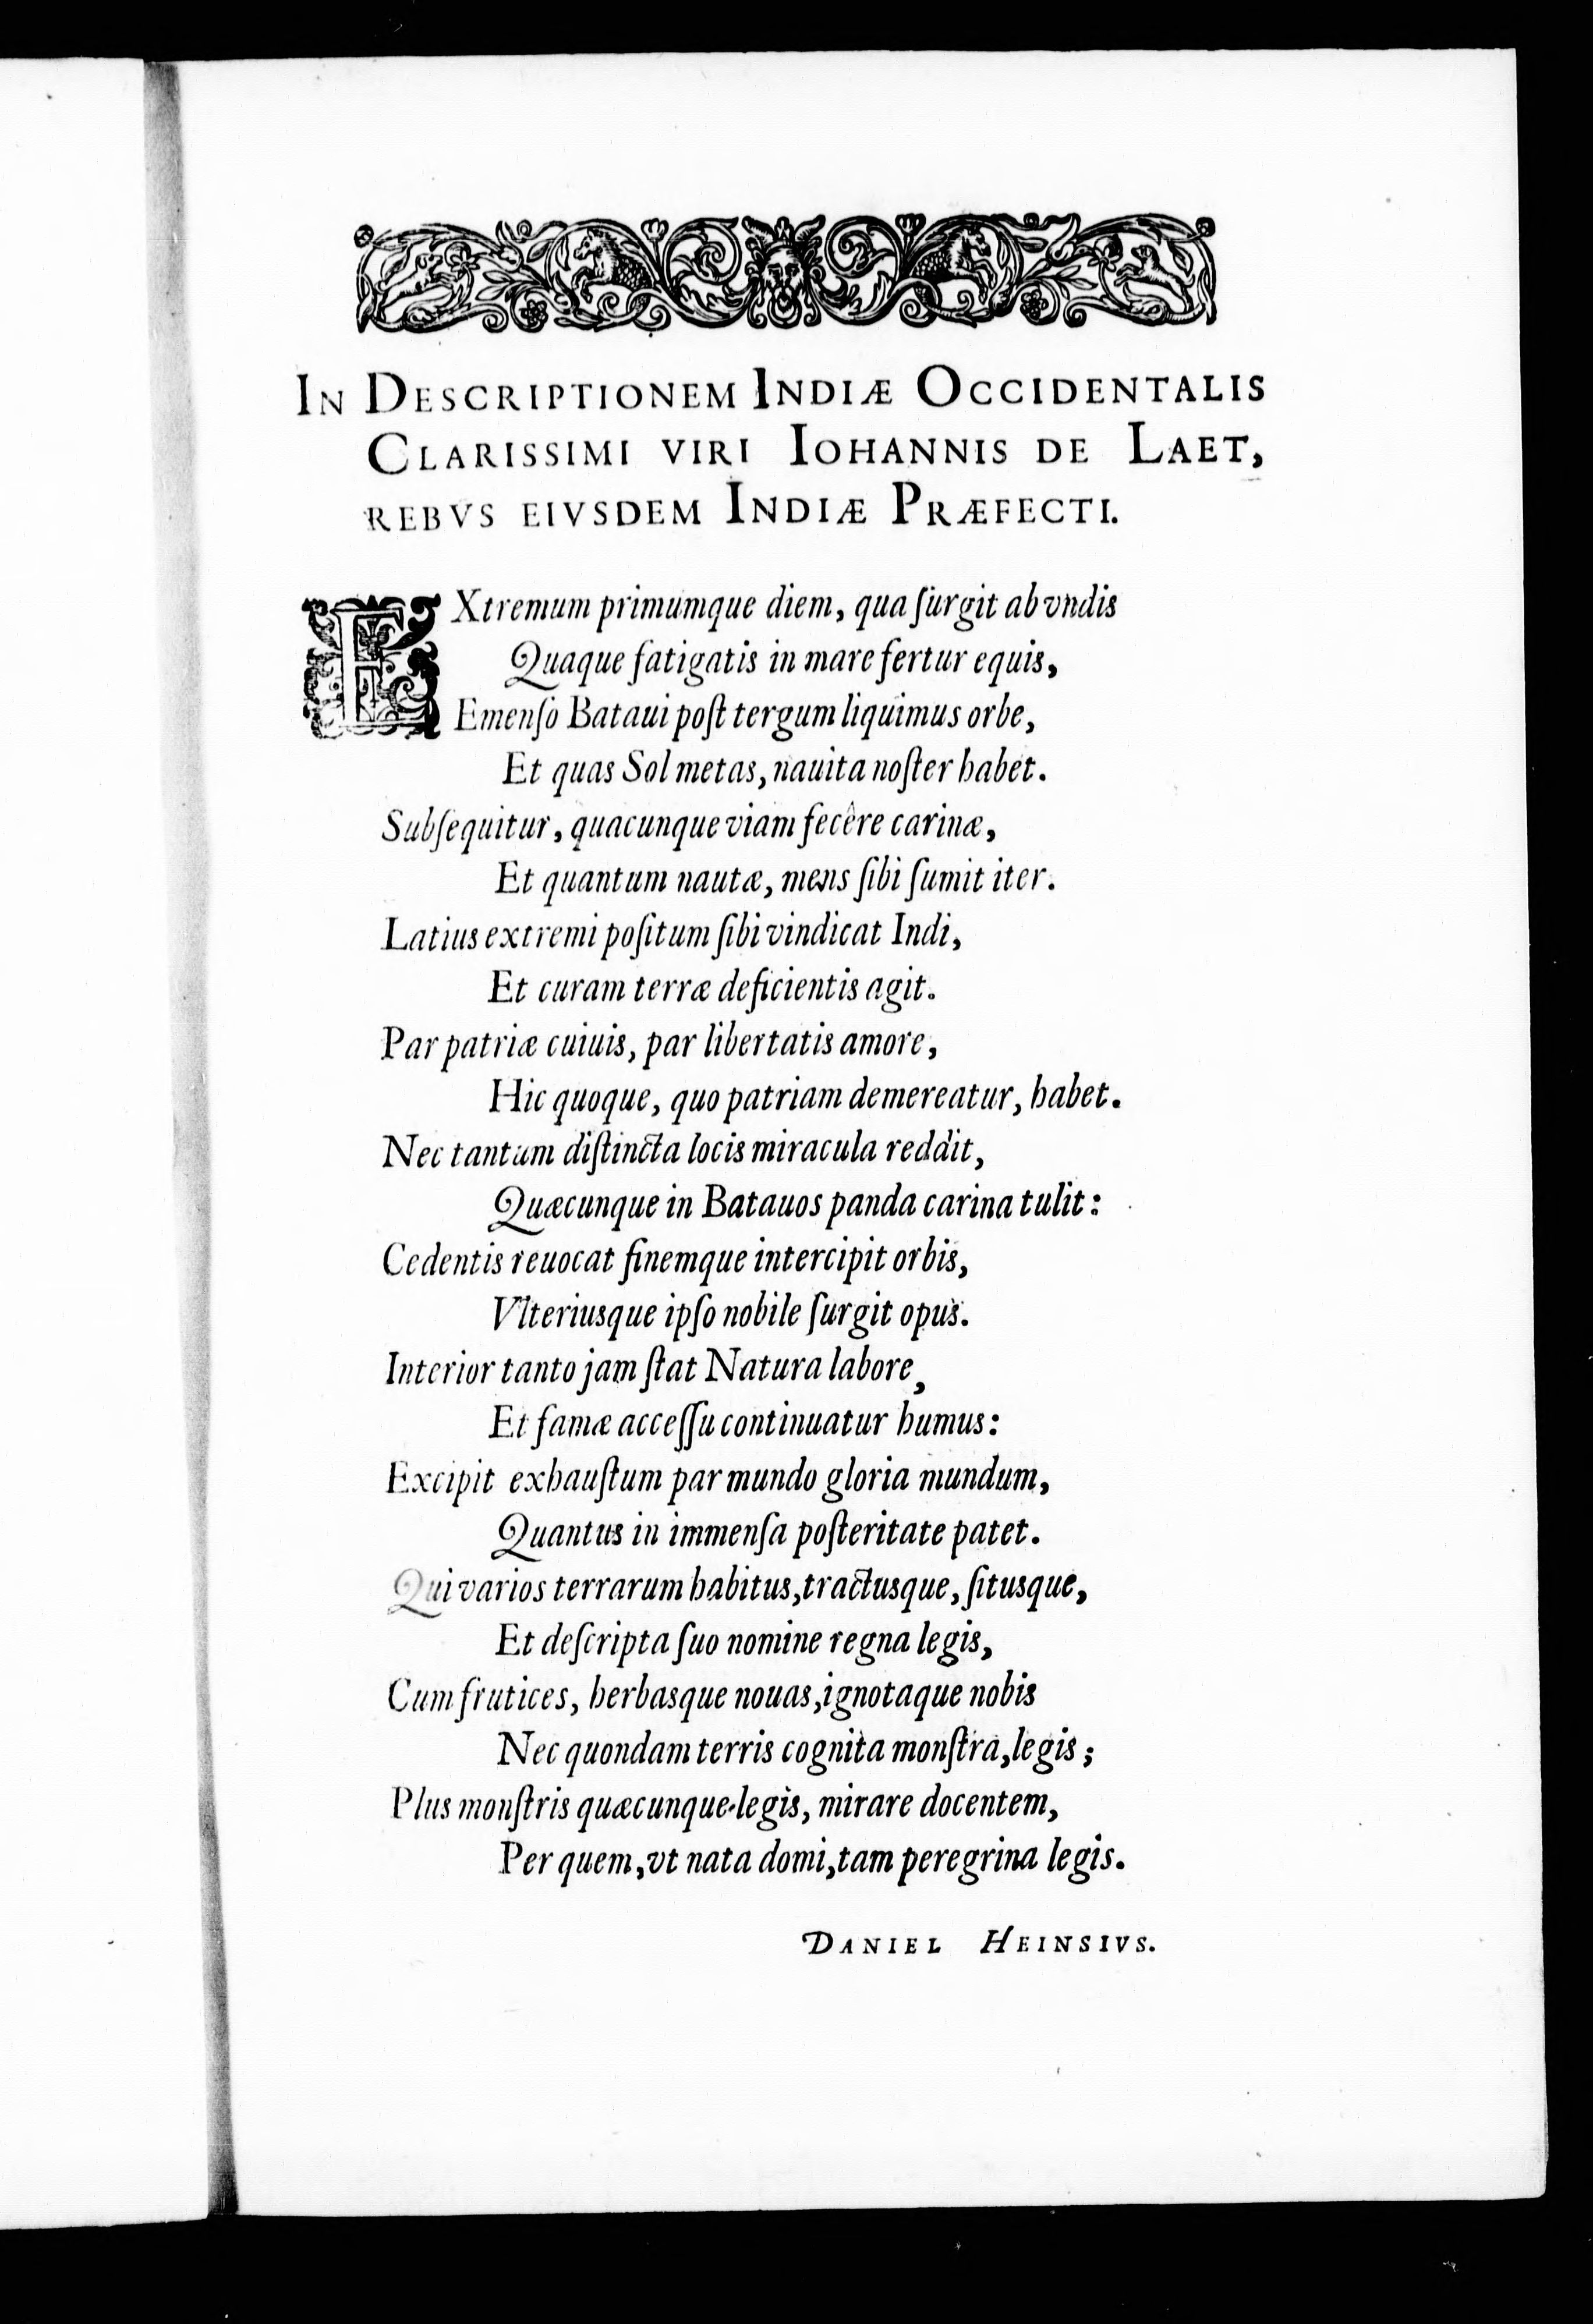 IN DESCRIPTIONEM INDIÆ OCCIDENTALIS
CLARISSIMI VIRI IOHANNIS DE LAET,
REBVS EIVSDEM INDIÆ PRÆFECTI.
EXtremum primumque diem, qua ſurgit ab vndis
Quaque fatigatis in mare fertur equis,
Emenſo Bataui poſt tergum liquimus orbe,
Et quas Sol metas, nauita noſter habet.
Subſequitur, quacunque viam fecêre carinæ,
Et quantum nautæ, mens ſibi ſumit iter.
Latius extremi poſitum ſibi vindicat Indi,
Et curam terræ deficientis agit.
Par patriæ cuiuis, par libertatis amore,
Hic quoque, quo patriam demereatur, habet.
Nec tantum diſtincta locis miracula reddit,
Quæcunque in Batauos panda carina tulit:
Cedentis reuocat finemque intercipit orbis,
Vlteriusque ipſo nobile ſurgit opus.
Interior tanto jam ſtat Natura labore,
Et famæ acceſſu continuatur humus:
Excipit exhauſtum par mundo gloria mundum,
Quantus in immenſa poſteritate patet.
Qui varios terrarum habitus, tractusque, ſitusque,
Et deſcripta ſuo nomine regna legis,
Cum frutices, herbasque nouas, ignotaque nobis
Nec quondam terris cognita monſtra, legis;
Plus monſtris quæcunque legis, mirare docentem,
Per quem, vt nata domi, tam peregrina legis.
DANIEL HEINSIVS.